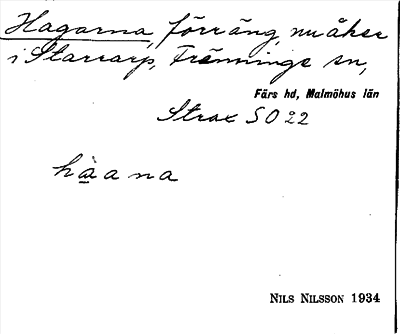 Hagarna, förr äng, nu åker
i Starrarp, Fränninge sn,
Färs hd, Malmöhus län
Strax SO 22
hàana
NILS NILSSON 1934